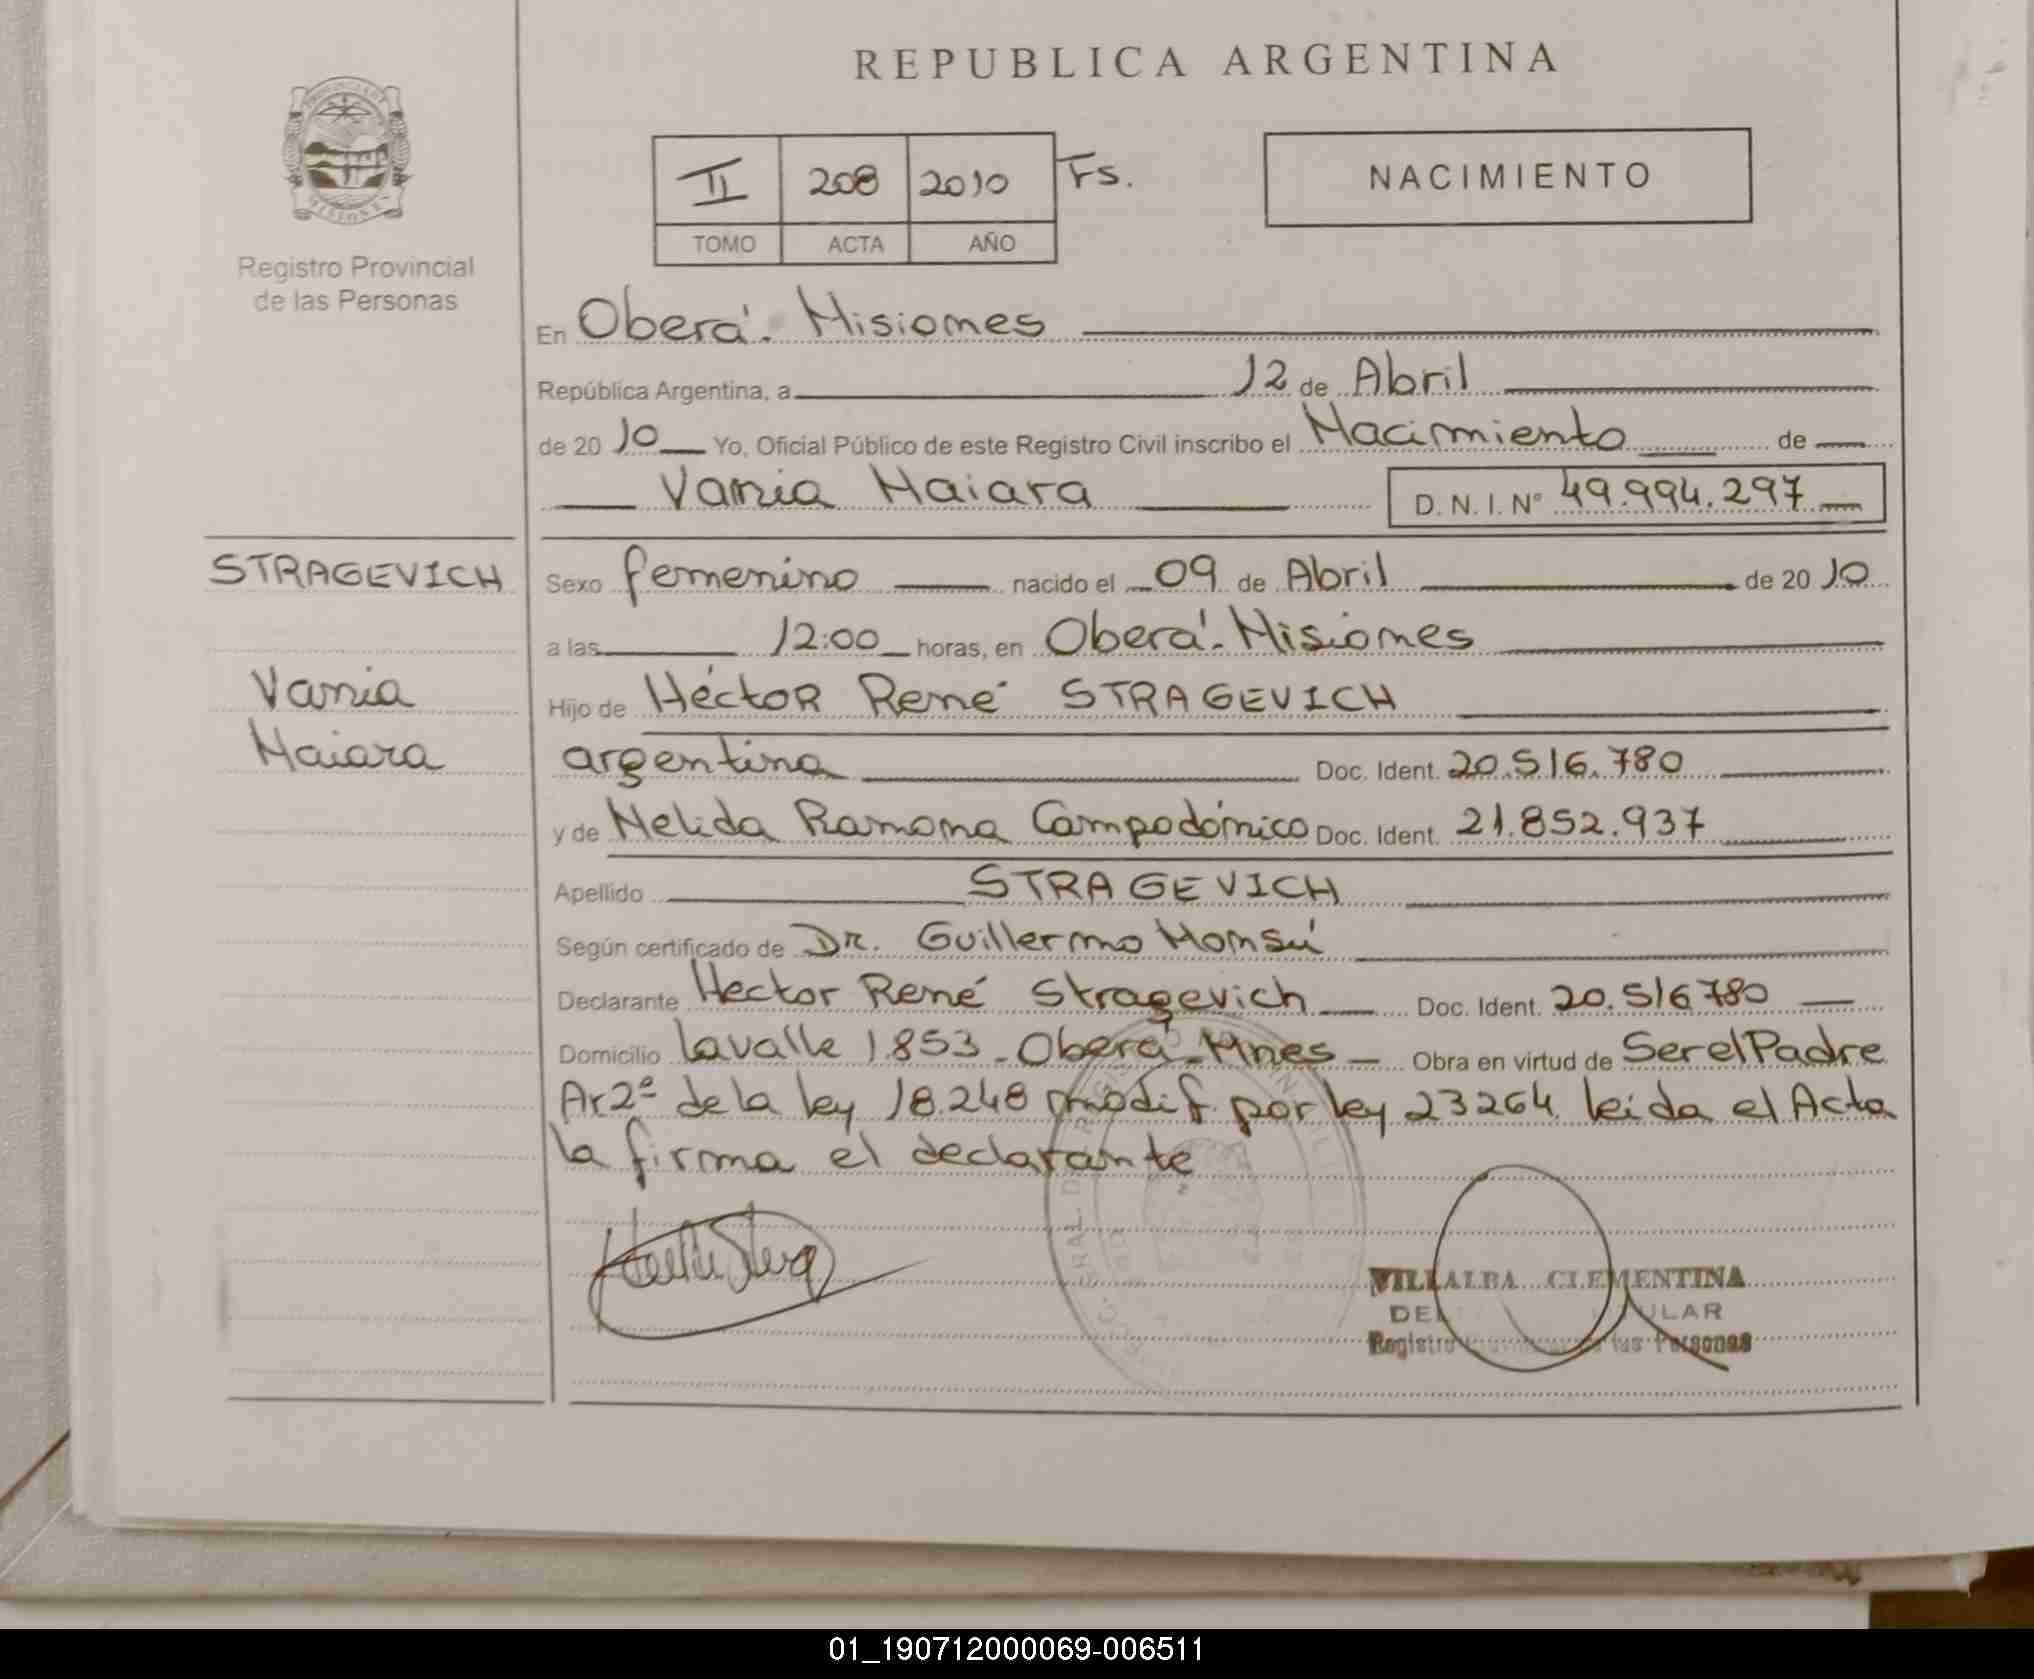 REPUBLICA ARGENTINA
PROVINCIA DE
MISIONES
Registro Provincial
de las Personas
II 208 2010 Fs.
TOMO ACTA AÑO
NACIMIENTO
En Oberá - Misiones
República Argentina, a 12 de Abril
de 20 10 Yo, Oficial Público de este Registro Civil inscribo el Nacimiento de
Vania Maiara D. N. I. Nº 49.994.297
STRAGEVICH
Vania
Maiara
Sexo femenino nacido el 09 de Abril de 20 10
a las 12:00 horas, en Oberá - Misiones
Hijo de Héctor René STRAGEVICH
argentina Doc. Ident. 20.516.780
y de Nelida Ramona Campodónico Doc. Ident. 21.852.937
Apellido STRAGEVICH
Según certificado de Dr. Guillermo
Declarante Hector René Stragevich Doc. Ident. 20.516780
Domicilio Lavalle 1.853 - Oberá - Mnes - Obra en virtud de Ser el Padre
Ar 2º de la ley 18.248 modif. por ley 23264 leida el Acta
la firma el declarante
VILLALBA CLEMENTINA
Registro las Personas
01_190712000069-006511